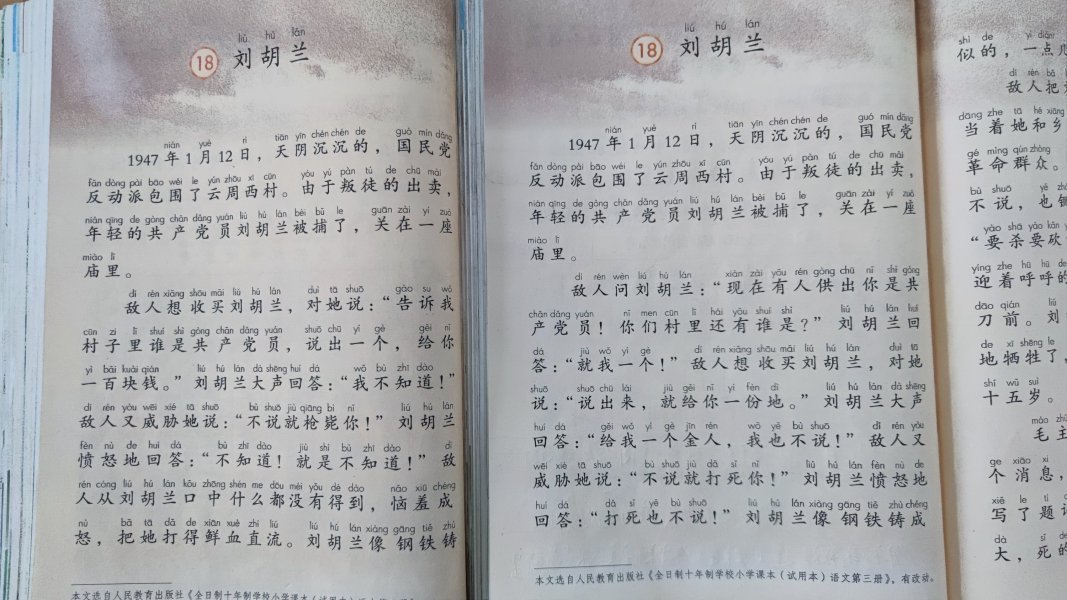 liú hú lán
18 刘胡兰
nián yuè rì tiān yīn chén chén de guó mín dǎng
1947年1月12日，天阴沉沉的，国民党
fǎn dòng pài bāo wéi le yún zhōu xī cūn yóu yú pàn tú de chū mài
反动派包围了云周西村。由于叛徒的出卖，
nián qīng de gòng chǎn dǎng yuán liú hú lán bèi bǔ le guān zài yí zuò
年轻的共产党员刘胡兰被捕了，关在一座
miào lǐ
庙里。
dí rén xiǎng shōu mǎi liú hú lán duì tā shuō gào su wǒ
敌人想收买刘胡兰，对她说：“告诉我
cūn zi lǐ shuí shì gòng chǎn dǎng yuán shuō chū yí gè gěi nǐ
村子里谁是共产党员，说出一个，给你
yì bǎi kuài qián liú hú lán dà shēng huí dá wǒ bù zhī dào
一百块钱。”刘胡兰大声回答：“我不知道！”
dí rén yòu wēi xié tā shuō bù shuō jiù qiāng bì nǐ liú hú lán
敌人又威胁她说：“不说就枪毙你！”刘胡兰
fèn nù de huí dá bù zhī dào jiù shì bù zhī dào dí
愤怒地回答：“不知道！就是不知道！”敌
rén cóng liú hú lán kǒu zhōng shén me dōu méi yǒu dé dào nǎo xiū chéng
人从刘胡兰口中什么都没有得到，恼羞成
nù bǎ tā dǎ de xiān xuè zhí liú liú hú lán xiàng gāng tiě zhù
怒，把她打得鲜血直流。刘胡兰像钢铁铸
liú hú lán
18 刘胡兰
nián yuè rì tiān yīn chén chén de guó mín dǎng
1947年1月12日，天阴沉沉的，国民党
fǎn dòng pài bāo wéi le yún zhōu xī cūn yóu yú pàn tú de chū mài
反动派包围了云周西村。由于叛徒的出卖，
nián qīng de gòng chǎn dǎng yuán liú hú lán bèi bǔ le guān zài yí zuò
年轻的共产党员刘胡兰被捕了，关在一座
miào lǐ
庙里。
dí rén wèn liú hú lán xiàn zài yǒu rén gòng chū nǐ shì gòng
敌人问刘胡兰：“现在有人供出你是共
chǎn dǎng yuán nǐ men cūn lǐ hái yǒu shuí shì liú hú lán huí
产党员！你们村里还有谁是？”刘胡兰回
dá jiù wǒ yí gè dí rén xiǎng shōu mǎi liú hú lán duì tā
答：“就我一个！”敌人想收买刘胡兰，对她
shuō shuō chū lái jiù gěi nǐ yí fèn dì liú hú lán dà shēng
说：“说出来，就给你一份地。”刘胡兰大声
huí dá gěi wǒ yí gè jīn rén wǒ yě bù shuō dí rén yòu
回答：“给我一个金人，我也不说！”敌人又
wēi xié tā shuō bù shuō jiù dǎ sǐ nǐ liú hú lán fèn nù de
威胁她说：“不说就打死你！”刘胡兰愤怒地
huí dá dǎ sǐ yě bù shuō liú hú lán xiàng gāng tiě zhù chéng
回答：“打死也不说！”刘胡兰像钢铁铸成
本文选自人民教育出版社《全日制十年制学校小学课本（试用本）语文第三册》，有改动。
shì de yì diǎn
似的，一点
dí rén bǎ
敌人把
dāng zhe tā hé xiāng
当着她和乡
gé mìng qún zhòng
革命群众。
bù shuō yě
不说，也
yào shā yào kǎn
“要杀要砍
yíng zhe hū hū de
迎着呼呼的
dāo qián liú
刀前。刘
de xī shēng le
地牺牲了，
shí wǔ suì
十五岁。
máo zhǔ
毛主
gè xiāo xi
个消息，
xiě le tí
写了题
dà sǐ de
大，死的